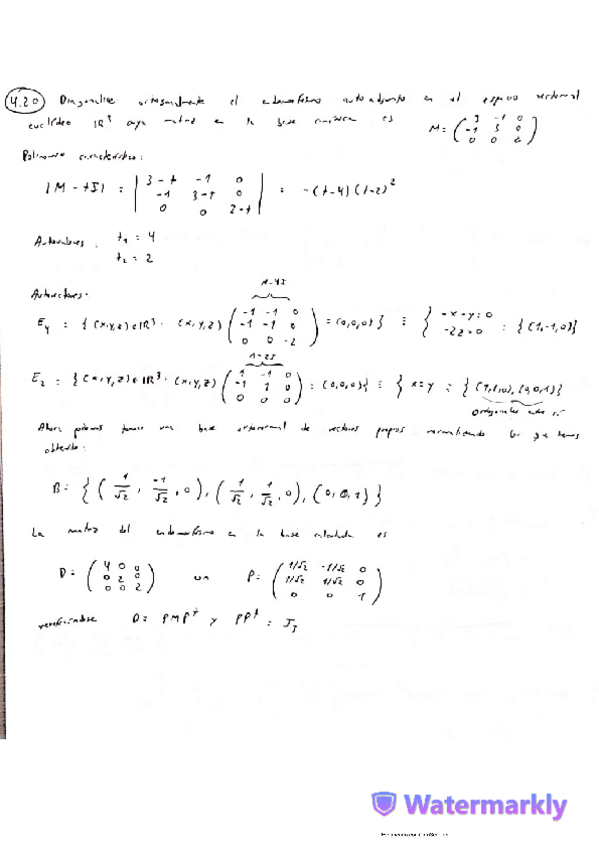 4.20 Diagonalice ortogonalmente el endomorfismo autoadjunto en el espacio vectorial
euclídeo IR³ cuya matriz en la base canónica es M = ( 3 -1 0 / -1 3 0 / 0 0 2 )
Polinomio característico:
|M - tI| = | 3-t -1 0 / -1 3-t 0 / 0 0 2-t | = -(t-4)(t-2)²
Autovalores: t₁ = 4
t₂ = 2
M-4I
Autovectores:
E₄ = { (x,y,z)∈IR³ · (x,y,z) ( -1 -1 0 / -1 -1 0 / 0 0 -2 ) = (0,0,0) } ≡ { -x-y=0 / -2z=0 = { (1,-1,0) }
E₂ = { (x,y,z)∈IR³ · (x,y,z) ( 1 -1 0 / -1 1 0 / 0 0 0 ) = (0,0,0) } ≡ { x=y = { (1,1,0), (0,0,1) }
ortogonales entre sí
Ahora podemos tomar una base ortonormal de vectores propios normalizando los que hemos
obtenido:
B = { ( 1/√2 , -1/√2 , 0 ), ( 1/√2 , 1/√2 , 0 ), ( 0, 0, 1 ) }
La matriz del endomorfismo en la base calculada es
D = ( 4 0 0 / 0 2 0 / 0 0 2 ) con P = ( 1/√2 -1/√2 0 / 1/√2 1/√2 0 / 0 0 1 )
verificándose D = PMPᵗ y PPᵗ = I₃
Watermarkly